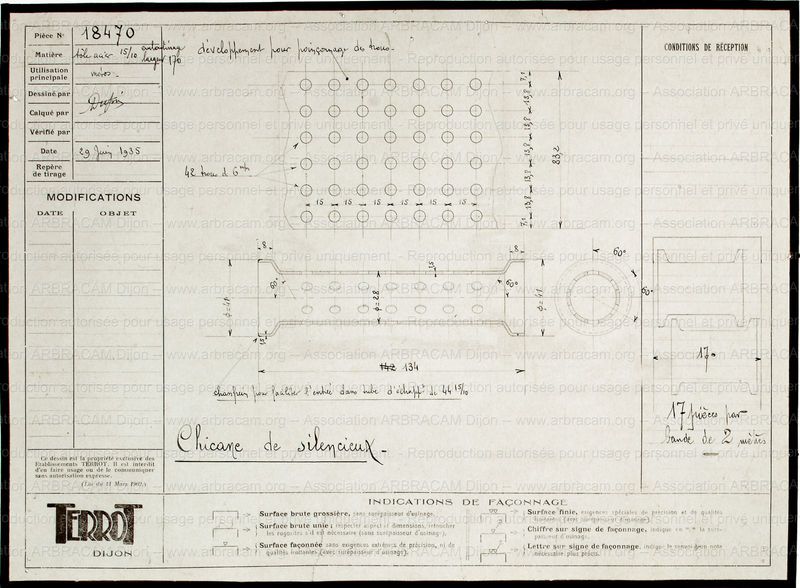 Pièce N° 18470
Matière tôle acier 15/10 largeur 170
Utilisation principale motos.
Dessiné par
Calqué par
Vérifié par
Date 29 Juin 1935
Repère de tirage
MODIFICATIONS
DATE OBJET
développement pour poinçonnage des trous.
CONDITIONS DE RÉCEPTION
42 trous d 6 m/m
15 15 15 15 15 15
7,1 13,8 13,8 13,8 13,8 13,8 7,1
83,2
8 8
15
60° 60°
φ = 41 φ = 28 φ = 41
15
60°
60°
142 134
chanfrein pour faciliter l'entrée dans tube d'échappt de 44 15/10
170
17 pièces par
bande de 2 mètres
Chicane de silencieux.
Ce dessin est la propriété exclusive des
Etablissements TERROT. Il est interdit
d'en faire usage ou de le communiquer
sans autorisation expresse.
(Loi du 11 Mars 1902.)
TERROT
DIJON
INDICATIONS DE FAÇONNAGE
Surface brute grossière, sans surépaisseur d'usinage.
Surface brute unie; respecter aspect et dimensions, retoucher
les rugosités s'il est nécessaire (sans surépaisseur d'usinage).
Surface façonnée sans exigences extrêmes de précision, ni de
qualités frottantes (avec surépaisseur d'usinage).
Surface finie, exigences spéciales de précision et de qualités
frottantes (avec surépaisseur d'usinage).
Chiffre sur signe de façonnage, indique en m/m la surépaisseur d'usinage.
Lettre sur signe de façonnage, indique le renvoi à une note
nécessaire plus précise.
Reproduction autorisée pour usage personnel et privé uniquement. - www.arbracam.org -- Association ARBRACAM Dijon